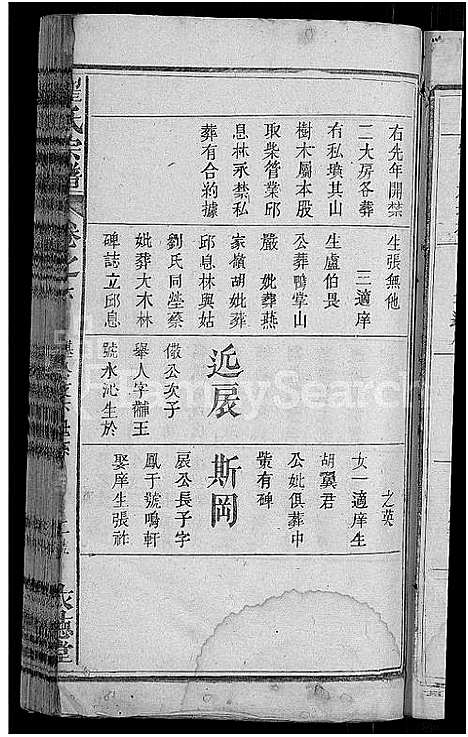 右先年開禁
二大房各葬
右私墳其山
樹木屬本股
取柴管業邱
息林永禁私
葬有合約據
生張無他
三適庠
生盧伯畏
公葬鴨掌山
嚴妣葬燕
家嶺胡妣葬
邱息林與姑
劉氏同塋蔡
妣葬大木林
碑誌立邱息
近扆
儆公次子
舉人字黼王
號永沁生於
之英
女一適庠生
胡翼君
公妣俱葬中
貲有碑
斯岡
扆公長子字
鳳于號鳴軒
娶庠生張祚
氏宗譜
卷之六
MySearch